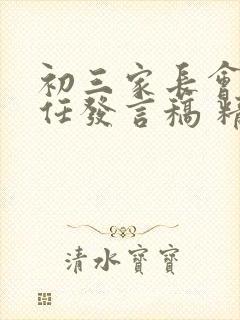 初三家長會
任發言稿 精
清水寶寶